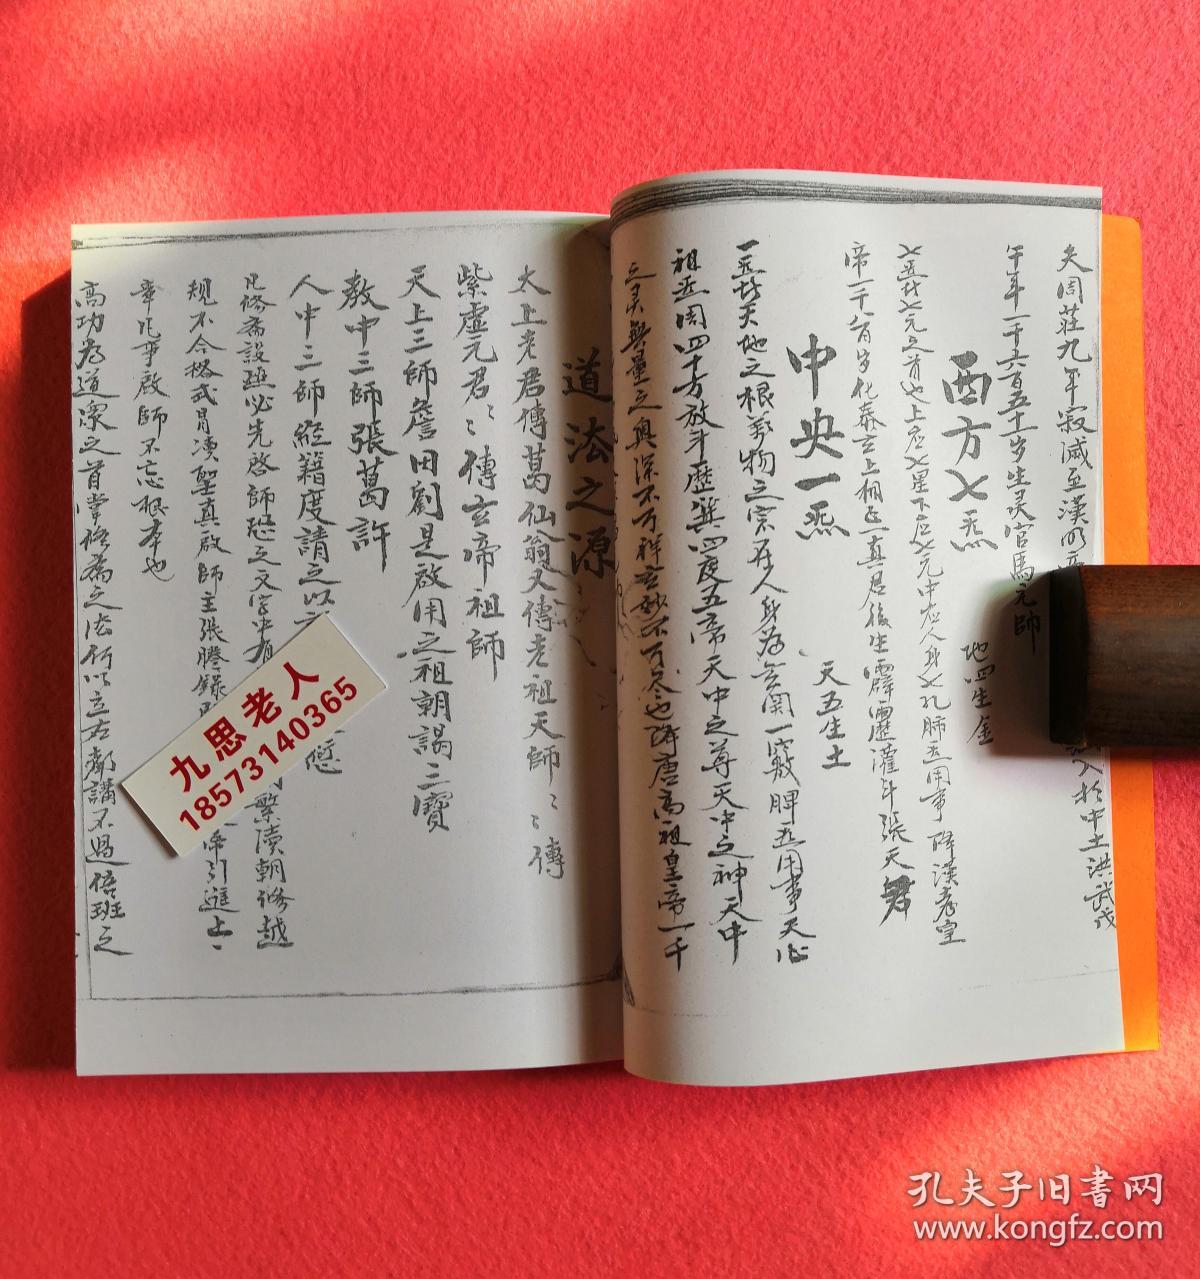 夫周莊九年寂滅至漢明帝
入於中土洪武戊
午年一千六百五十一岁生灵官馬元帥
西方七炁
地四生金
七炁於七元之首也上应七星下应七元中应人身七孔肺炁用事降漢孝宣
帝一千八百岁化泰玄上相正一真君後生霹靂灌斗張天君
中央一炁
天五生土
一炁於天地之根萬物之宗在人身為玄関一竅脾炁用事天心
祖炁周四十方放斗歷箕四度五帝天中之尊天中之神天中
之灵無量之奥深不可祥玄妙不可尽也降唐高祖皇帝一千
道法之源
太上老君傳葛仙翁又傳老祖天師〻傳
紫虛元君〻傳玄帝祖師
天上三師詹田劉是啟用之祖朝謁三寶
教中三師張葛許
人中三師經籍度請之以
愆
凡修斋設醮必先啓師恐之文字中有
繁瀆朝修越
规不合格式冐渎聖真啟師主張騰錄
牵引進上〻
章凡事啟師不忘根本也
高功為道衆之首掌修為之法行以立右都講不過借班之
九思老人
18573140365
孔夫子旧書网
www.kongfz.com